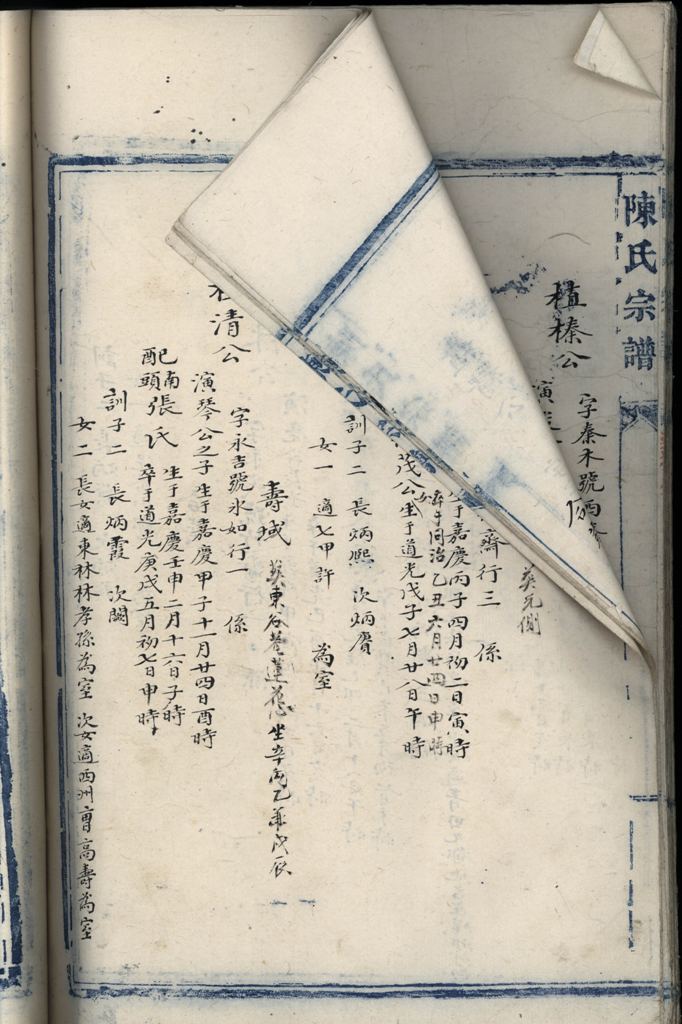 陳氏宗譜
植榛公
字秦禾號
葬兄側
齋行三 係
生于嘉慶丙子四月初二日寅時
卒于同治乙丑六月廿四日申時
茂公 生于道光戊子七月廿八日午時
訓子二 長炳熙 次炳膺
女一 適七甲許 為室
壽域 葬東谷巷蓮花心坐辛向乙兼戌辰
清公
字永吉號永如行一 係
演琴公之子生于嘉慶甲子十一月廿四日酉時
配南頭張氏 生于嘉慶壬申二月十六日子時
卒于道光庚戌五月初七日申時
訓子二 長炳霞 次闕
女二 長女適東林林孝孫為室 次女適西州曹高壽為室